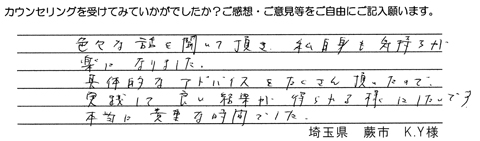 カウンセリングを受けてみていかがでしたか？ご感想・ご意見等をご自由にご記入願います。
色々な話を聞いて頂き、私自身も気持ちが
楽になりました。
具体的なアドバイスをたくさん頂いたので、
実践して良い結果が得られる様にしたいです
本当に貴重な時間でした。
埼玉県 蕨市 K.Y様